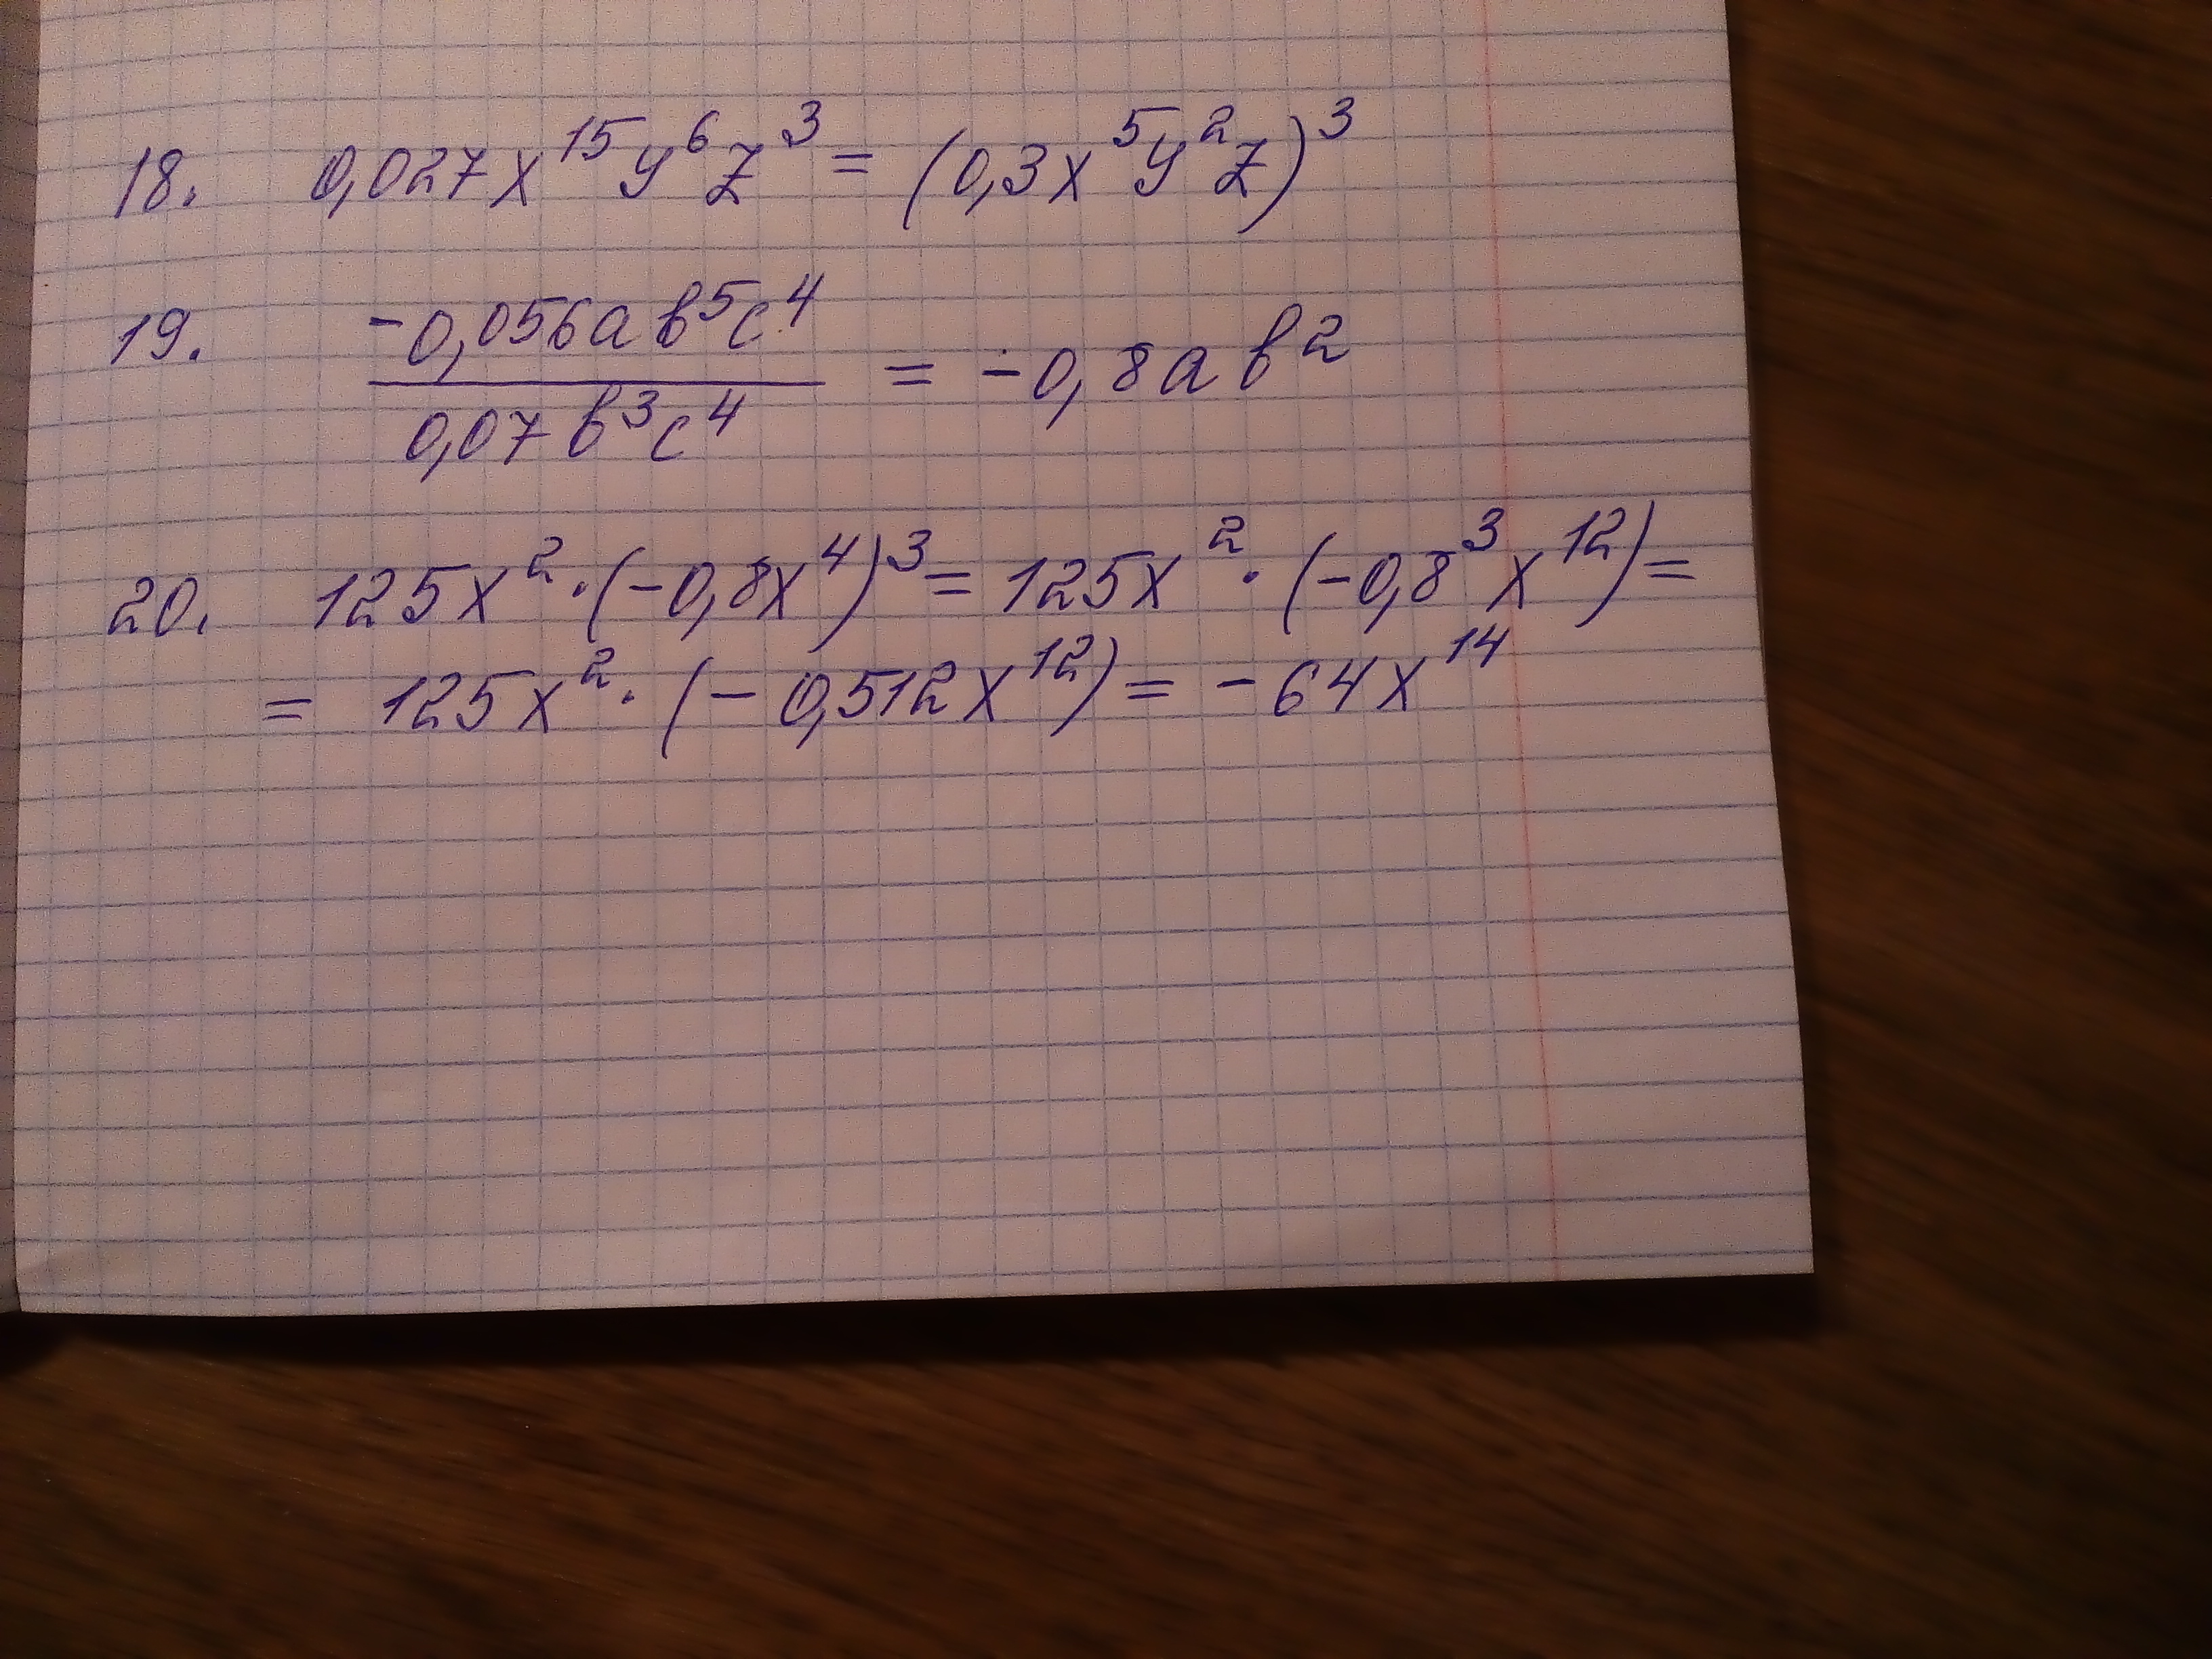 18. 0,027x¹⁵y⁶z³ = (0,3x⁵y²z)³
19. -0,056ab⁵c⁴ / 0,07b³c⁴ = -0,8ab²
20. 125x²·(-0,8x⁴)³ = 125x²·(-0,8³x¹²) =
= 125x²·(-0,512x¹²) = -64x¹⁴